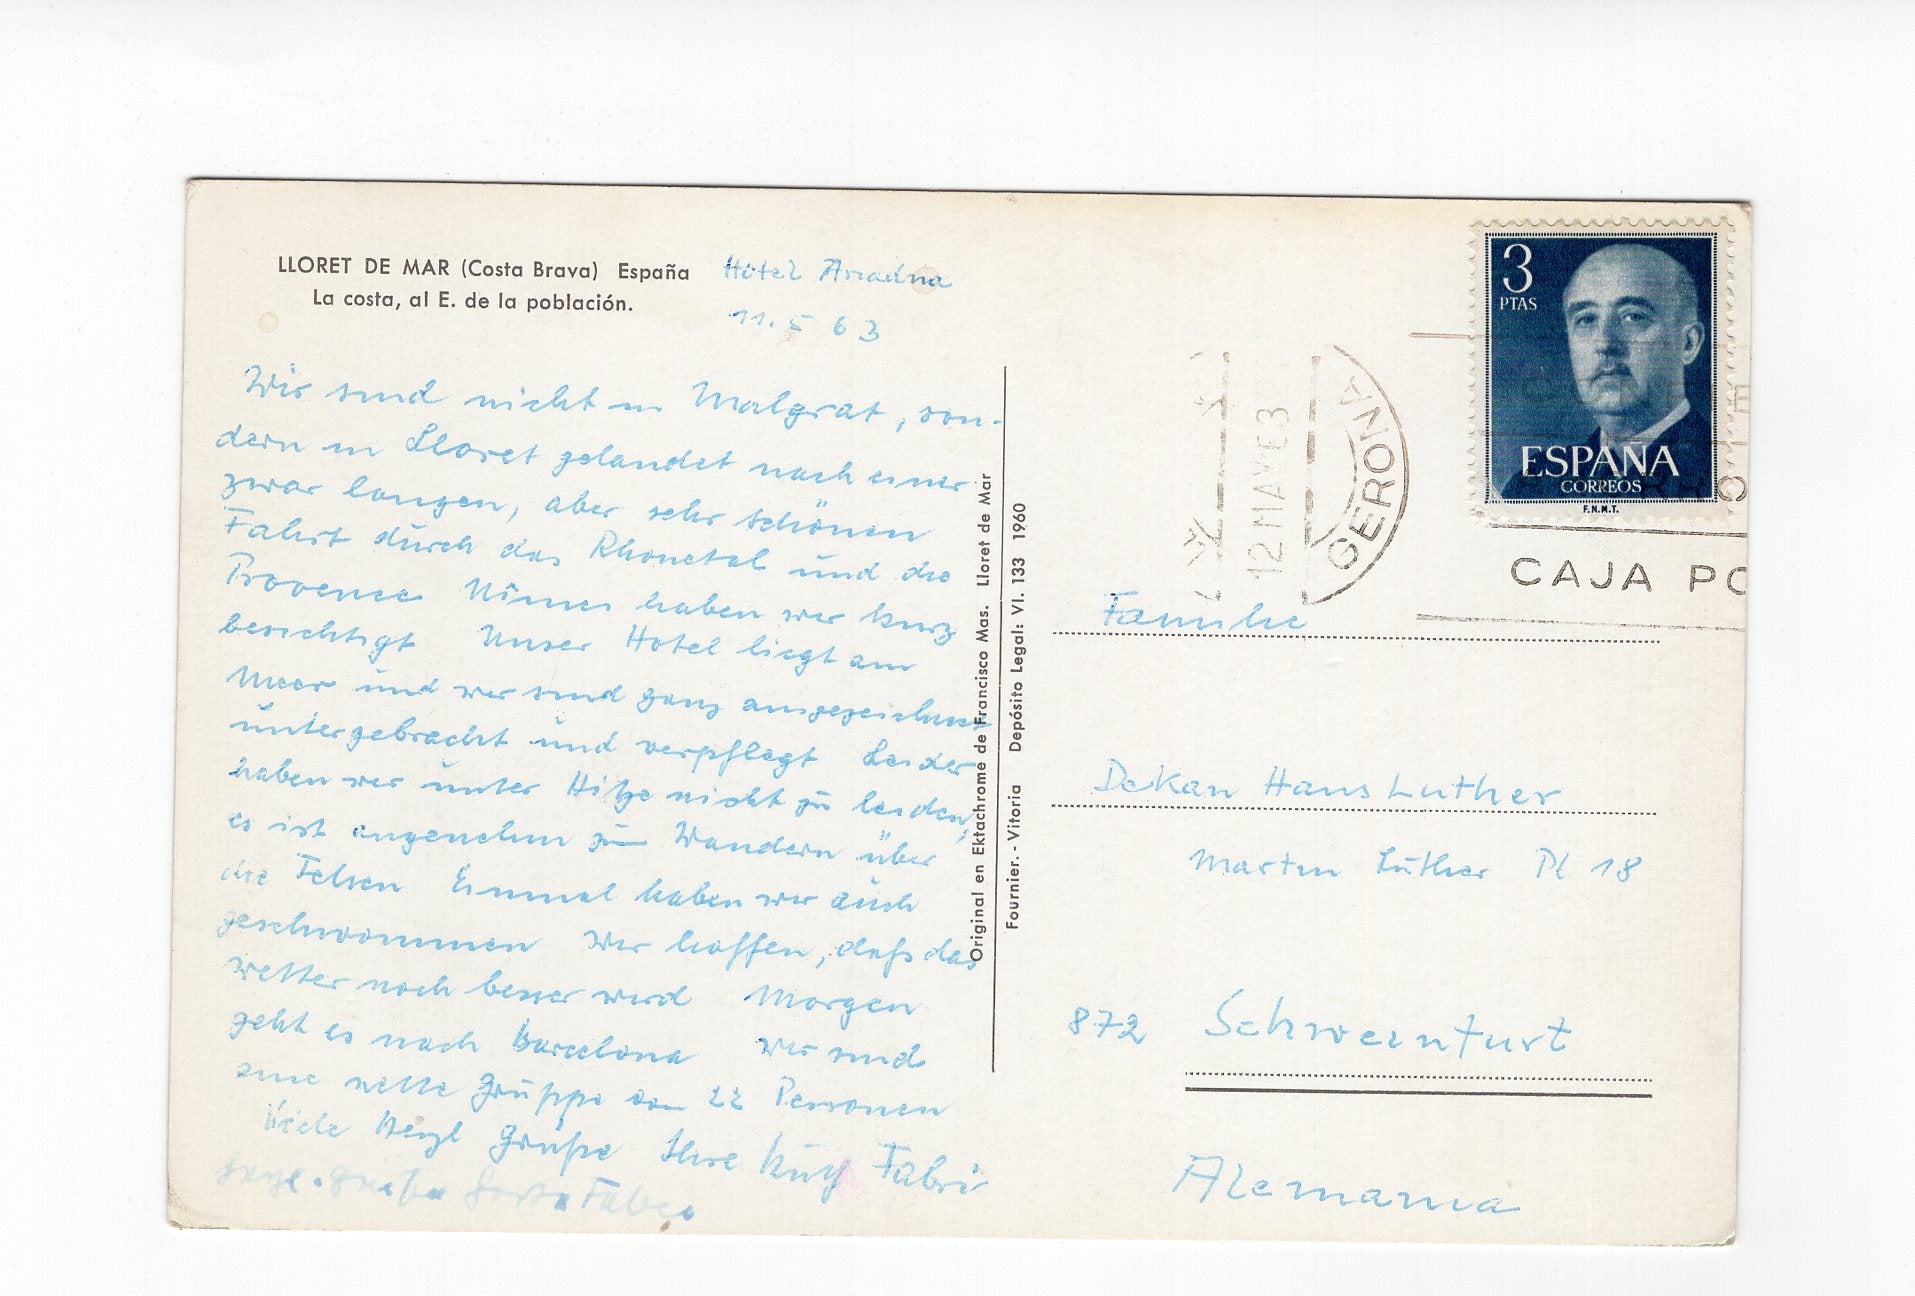 LLORET DE MAR (Costa Brava) España
La costa, al E. de la población.
Hotel Ariadna
11. 5 63
Wir sind nicht in Malgrat, son-
dern in Lloret gelandet nach einer
zwar langen, aber sehr schönen
Fahrt durch das Rhonetal und die
Provence Nîmes haben wir kurz
besichtigt Unser Hotel liegt am
Meer und wir sind ganz ausgezeichnet
untergebracht und verpflegt Leider
haben wir unter Hitze nicht zu leiden,
es ist angenehm zum Wandern über
die Felsen Einmal haben wir auch
geschwommen Wir hoffen, daß das
Wetter noch besser wird Morgen
geht es nach Barcelona Wir sind
eine nette Gruppe von 22 Personen
Viele Herzl Grüße Ihre Fabri
Original en Ektachrome de Francisco Mas. Lloret de Mar
Fournier. - Vitoria Depósito Legal: VI. 133 1960
12 MAY 63
GERONA
3
PTAS
ESPAÑA
CORREOS
F.N.M.T.
CAJA PO
Familie
Dekan Hans Luther
Martin Luther Pl 18
872 Schweinfurt
Alemania